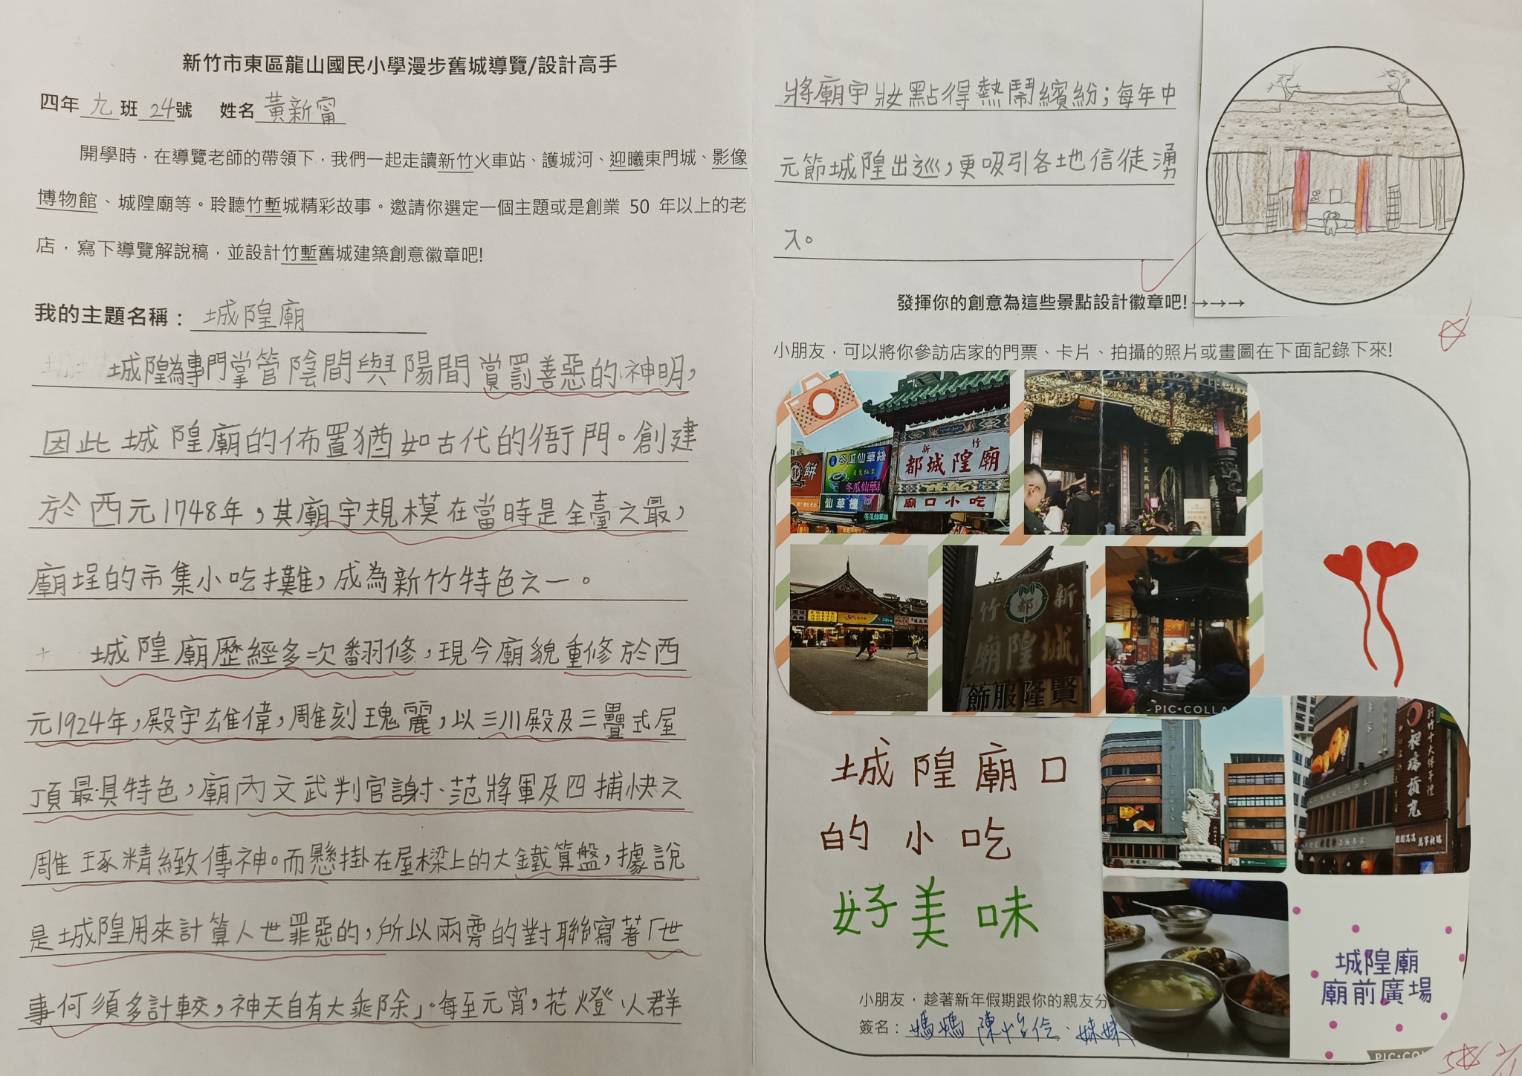 新竹市東區龍山國民小學漫步舊城導覽/設計高手
四年 九 班 24號 姓名 黃新甯
開學時，在導覽老師的帶領下，我們一起走讀新竹火車站、護城河、迎曦東門城、影像
博物館、城隍廟等。聆聽竹塹城精彩故事。邀請你選定一個主題或是創業 50 年以上的老
店，寫下導覽解說稿，並設計竹塹舊城建築創意徽章吧!
我的主題名稱：城隍廟
城隍為專門掌管陰間與陽間賞罰善惡的神明，
因此城隍廟的佈置猶如古代的衙門。創建
於西元1748年，其廟宇規模在當時是全臺之最，
廟埕的市集小吃攤，成為新竹特色之一。
城隍廟歷經多次翻修，現今廟貌重修於西
元1924年，殿宇雄偉，雕刻瑰麗，以三川殿及三疊式屋
頂最具特色，廟內文武判官謝、范將軍及四捕快之
雕琢精緻傳神。而懸掛在屋樑上的大鐵算盤，據說
是城隍用來計算人世罪惡的，所以兩旁的對聯寫著「世
事何須多計較，神天自有大乘除」。每至元宵，花燈以群
將廟宇妝點得熱鬧繽紛；每年中
元節城隍出巡，更吸引各地信徒湧
入。
發揮你的創意為這些景點設計徽章吧!→→→
小朋友，可以將你參訪店家的門票、卡片、拍攝的照片或畫圖在下面記錄下來!
新竹
都城隍廟
廟口小吃
冬瓜仙草綠
仙草
新竹
都
城隍廟
賢隆服飾
PIC•COLLA
城隍廟口
的小吃
好美味
新竹十大伴手禮
城隍廟
廟前廣場
PIC•CO
小朋友，趁著新年假期跟你的親友分
簽名：媽媽 陳怡伶、妹妹